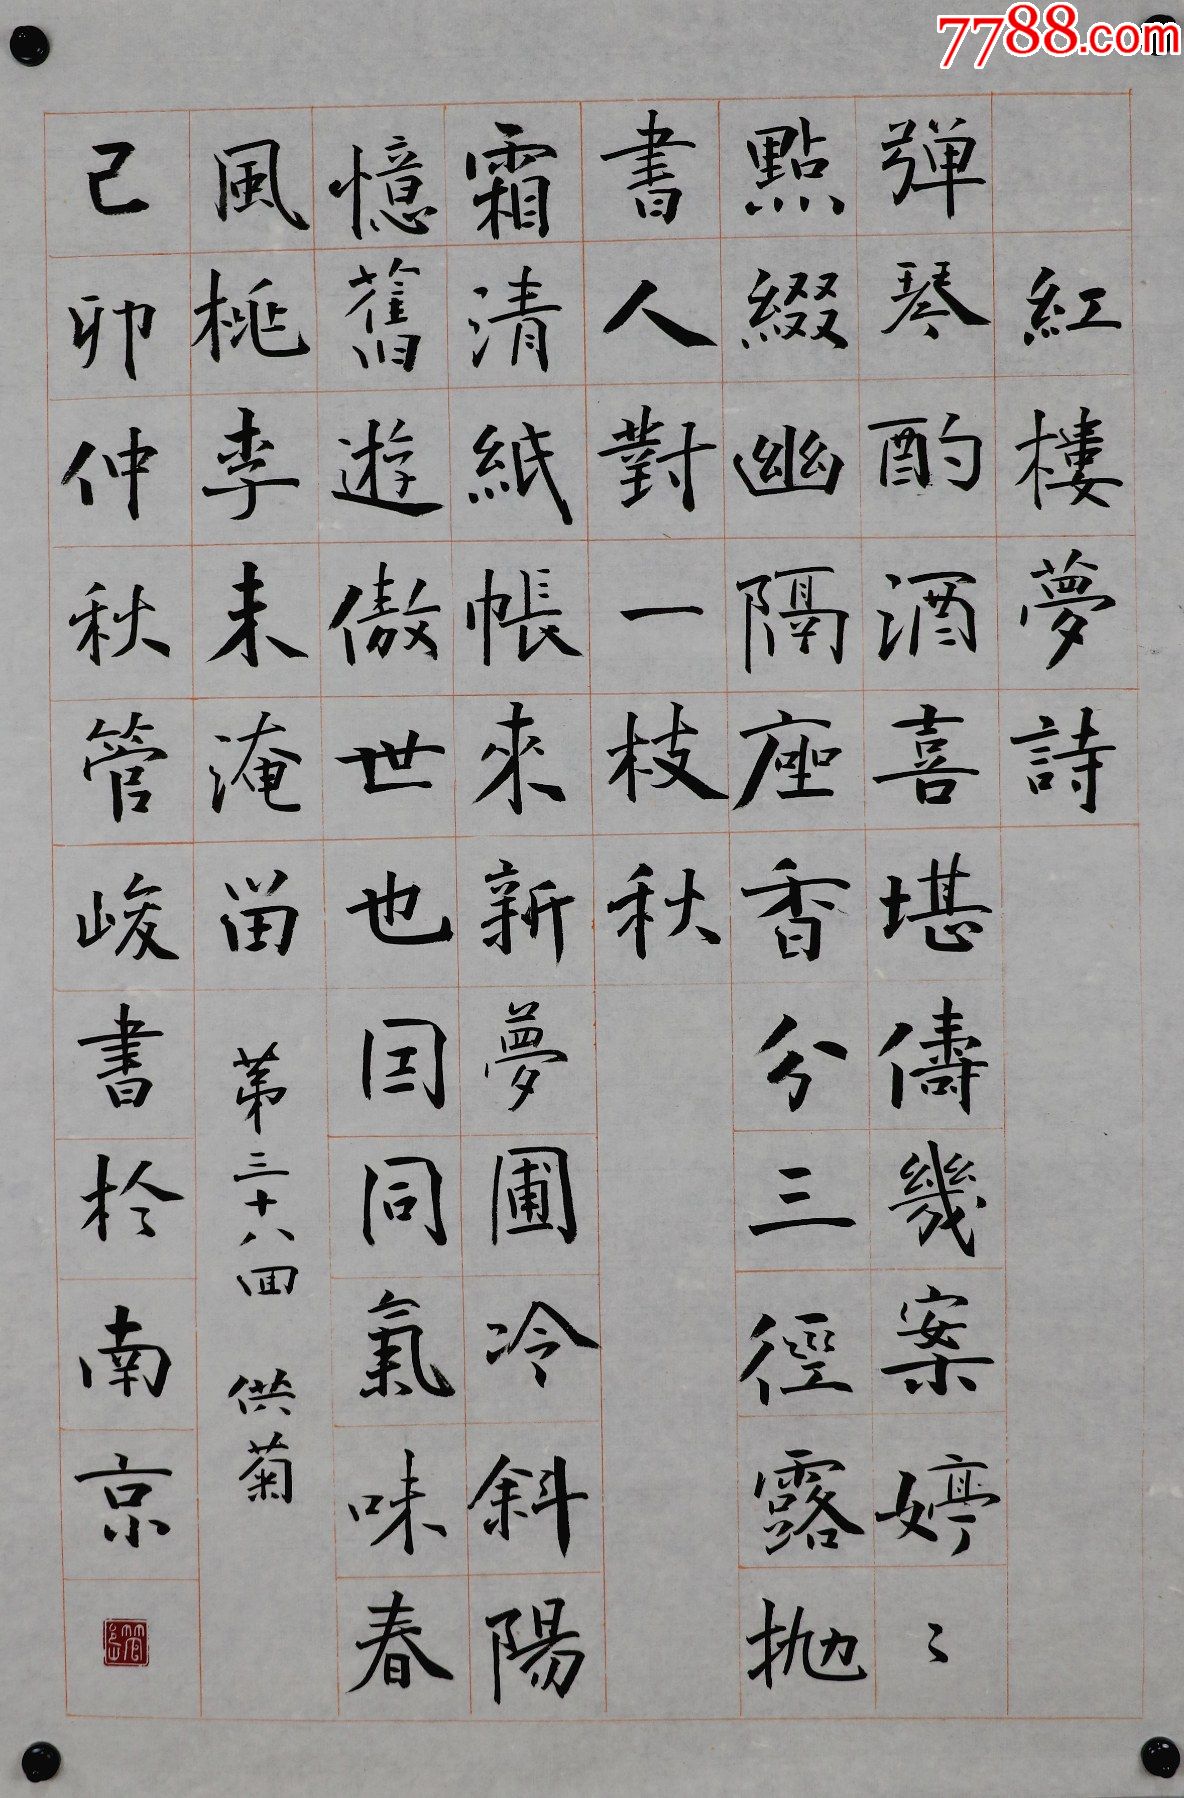 7788.com
紅樓夢詩
弹琴酌酒喜堪儔幾案婷〻
點綴幽隔座香分三徑露抛
書人對一枝秋
霜清紙帳來新夢圃冷斜陽
憶舊遊傲世也因同氣味春
風桃李未淹留
第三十八回 供菊
己卯仲秋管峻書於南京